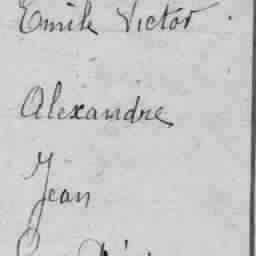 Emile Victor
Alexandre
Jean